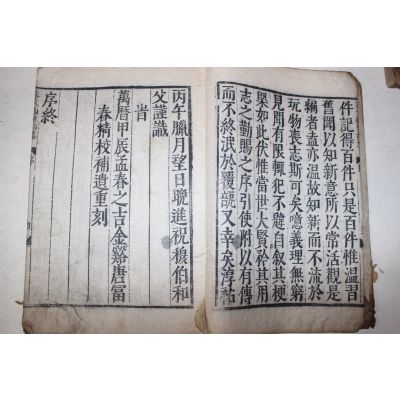 件記得百件只是百件惟溫習
舊聞以知新意所以常活觀是
編者蓋亦溫故知新而不流於
玩物喪志斯可矣噫義理無窮
見聞有限輒犯不韙自叙其梗
槩如此伏惟當世大賢矜其用
志之勤賜之序引使附以有傳
而不終泯於覆瓿又幸矣淳祐
丙午臘月望日晚進祝穆伯和
父謹識
旹
萬曆甲辰孟春之吉金谿唐富
春精校補遺重刻
序終